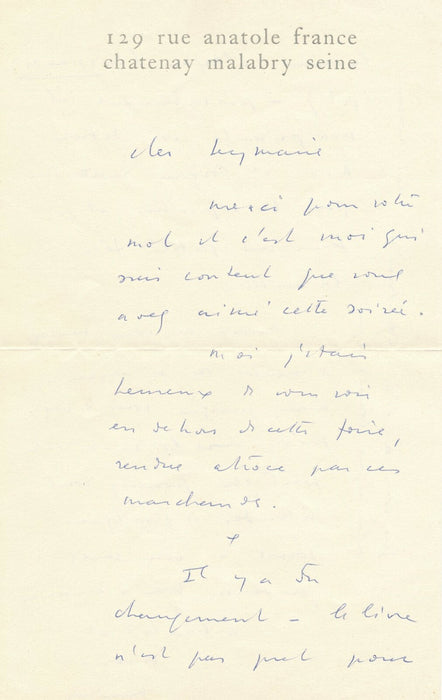 129 rue anatole france
chatenay malabry seine
cher
merci pour votre
mot et c'est moi qui
suis content que vous
avez aimé cette soirée.
moi j'étais
heureux de vous voir
en dehors de cette foire,
rendue atroce par ces
marchands.
+
Il y a du
changement – le livre
n'est pas prêt pour